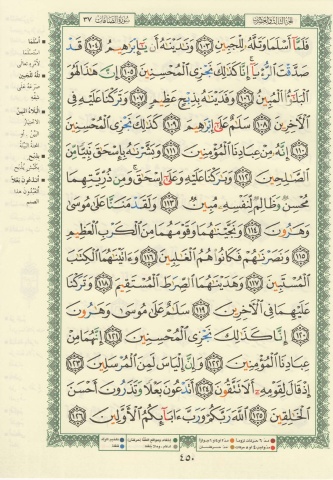 الجزء الثالث والعشرون
سورة الصافات
٣٧
فَلَمَّآ أَسْلَمَا وَتَلَّهُۥ لِلْجَبِينِ ١٠٣ وَنَٰدَيْنَٰهُ أَن يَٰٓإِبْرَٰهِيمُ ١٠٤ قَدْ
صَدَّقْتَ ٱلرُّءْيَآ إِنَّا كَذَٰلِكَ نَجْزِى ٱلْمُحْسِنِينَ ١٠٥ إِنَّ هَٰذَا لَهُوَ
ٱلْبَلَٰٓؤُا۟ ٱلْمُبِينُ ١٠٦ وَفَدَيْنَٰهُ بِذِبْحٍ عَظِيمٍ ١٠٧ وَتَرَكْنَا عَلَيْهِ فِى
ٱلْءَاخِرِينَ ١٠٨ سَلَٰمٌ عَلَىٰٓ إِبْرَٰهِيمَ ١٠٩ كَذَٰلِكَ نَجْزِى ٱلْمُحْسِنِينَ
١١٠ إِنَّهُۥ مِنْ عِبَادِنَا ٱلْمُؤْمِنِينَ ١١١ وَبَشَّرْنَٰهُ بِإِسْحَٰقَ نَبِيًّا مِّنَ
ٱلصَّٰلِحِينَ ١١٢ وَبَٰرَكْنَا عَلَيْهِ وَعَلَىٰٓ إِسْحَٰقَ وَمِن ذُرِّيَّتِهِمَا
مُحْسِنٌ وَظَالِمٌ لِّنَفْسِهِۦ مُبِينٌ ١١٣ وَلَقَدْ مَنَنَّا عَلَىٰ مُوسَىٰ
وَهَٰرُونَ ١١٤ وَنَجَّيْنَٰهُمَا وَقَوْمَهُمَا مِنَ ٱلْكَرْبِ ٱلْعَظِيمِ
١١٥ وَنَصَرْنَٰهُمْ فَكَانُوا۟ هُمُ ٱلْغَٰلِبِينَ ١١٦ وَءَاتَيْنَٰهُمَا ٱلْكِتَٰبَ
ٱلْمُسْتَبِينَ ١١٧ وَهَدَيْنَٰهُمَا ٱلصِّرَٰطَ ٱلْمُسْتَقِيمَ ١١٨ وَتَرَكْنَا
عَلَيْهِمَا فِى ٱلْءَاخِرِينَ ١١٩ سَلَٰمٌ عَلَىٰ مُوسَىٰ وَهَٰرُونَ
١٢٠ إِنَّا كَذَٰلِكَ نَجْزِى ٱلْمُحْسِنِينَ ١٢١ إِنَّهُمَا مِنْ
عِبَادِنَا ٱلْمُؤْمِنِينَ ١٢٢ وَإِنَّ إِلْيَاسَ لَمِنَ ٱلْمُرْسَلِينَ ١٢٣
إِذْ قَالَ لِقَوْمِهِۦٓ أَلَا تَتَّقُونَ ١٢٤ أَتَدْعُونَ بَعْلًا وَتَذَرُونَ أَحْسَنَ
ٱلْخَٰلِقِينَ ١٢٥ ٱللَّهَ رَبَّكُمْ وَرَبَّ ءَابَآئِكُمُ ٱلْأَوَّلِينَ ١٢٦
٤٥٠